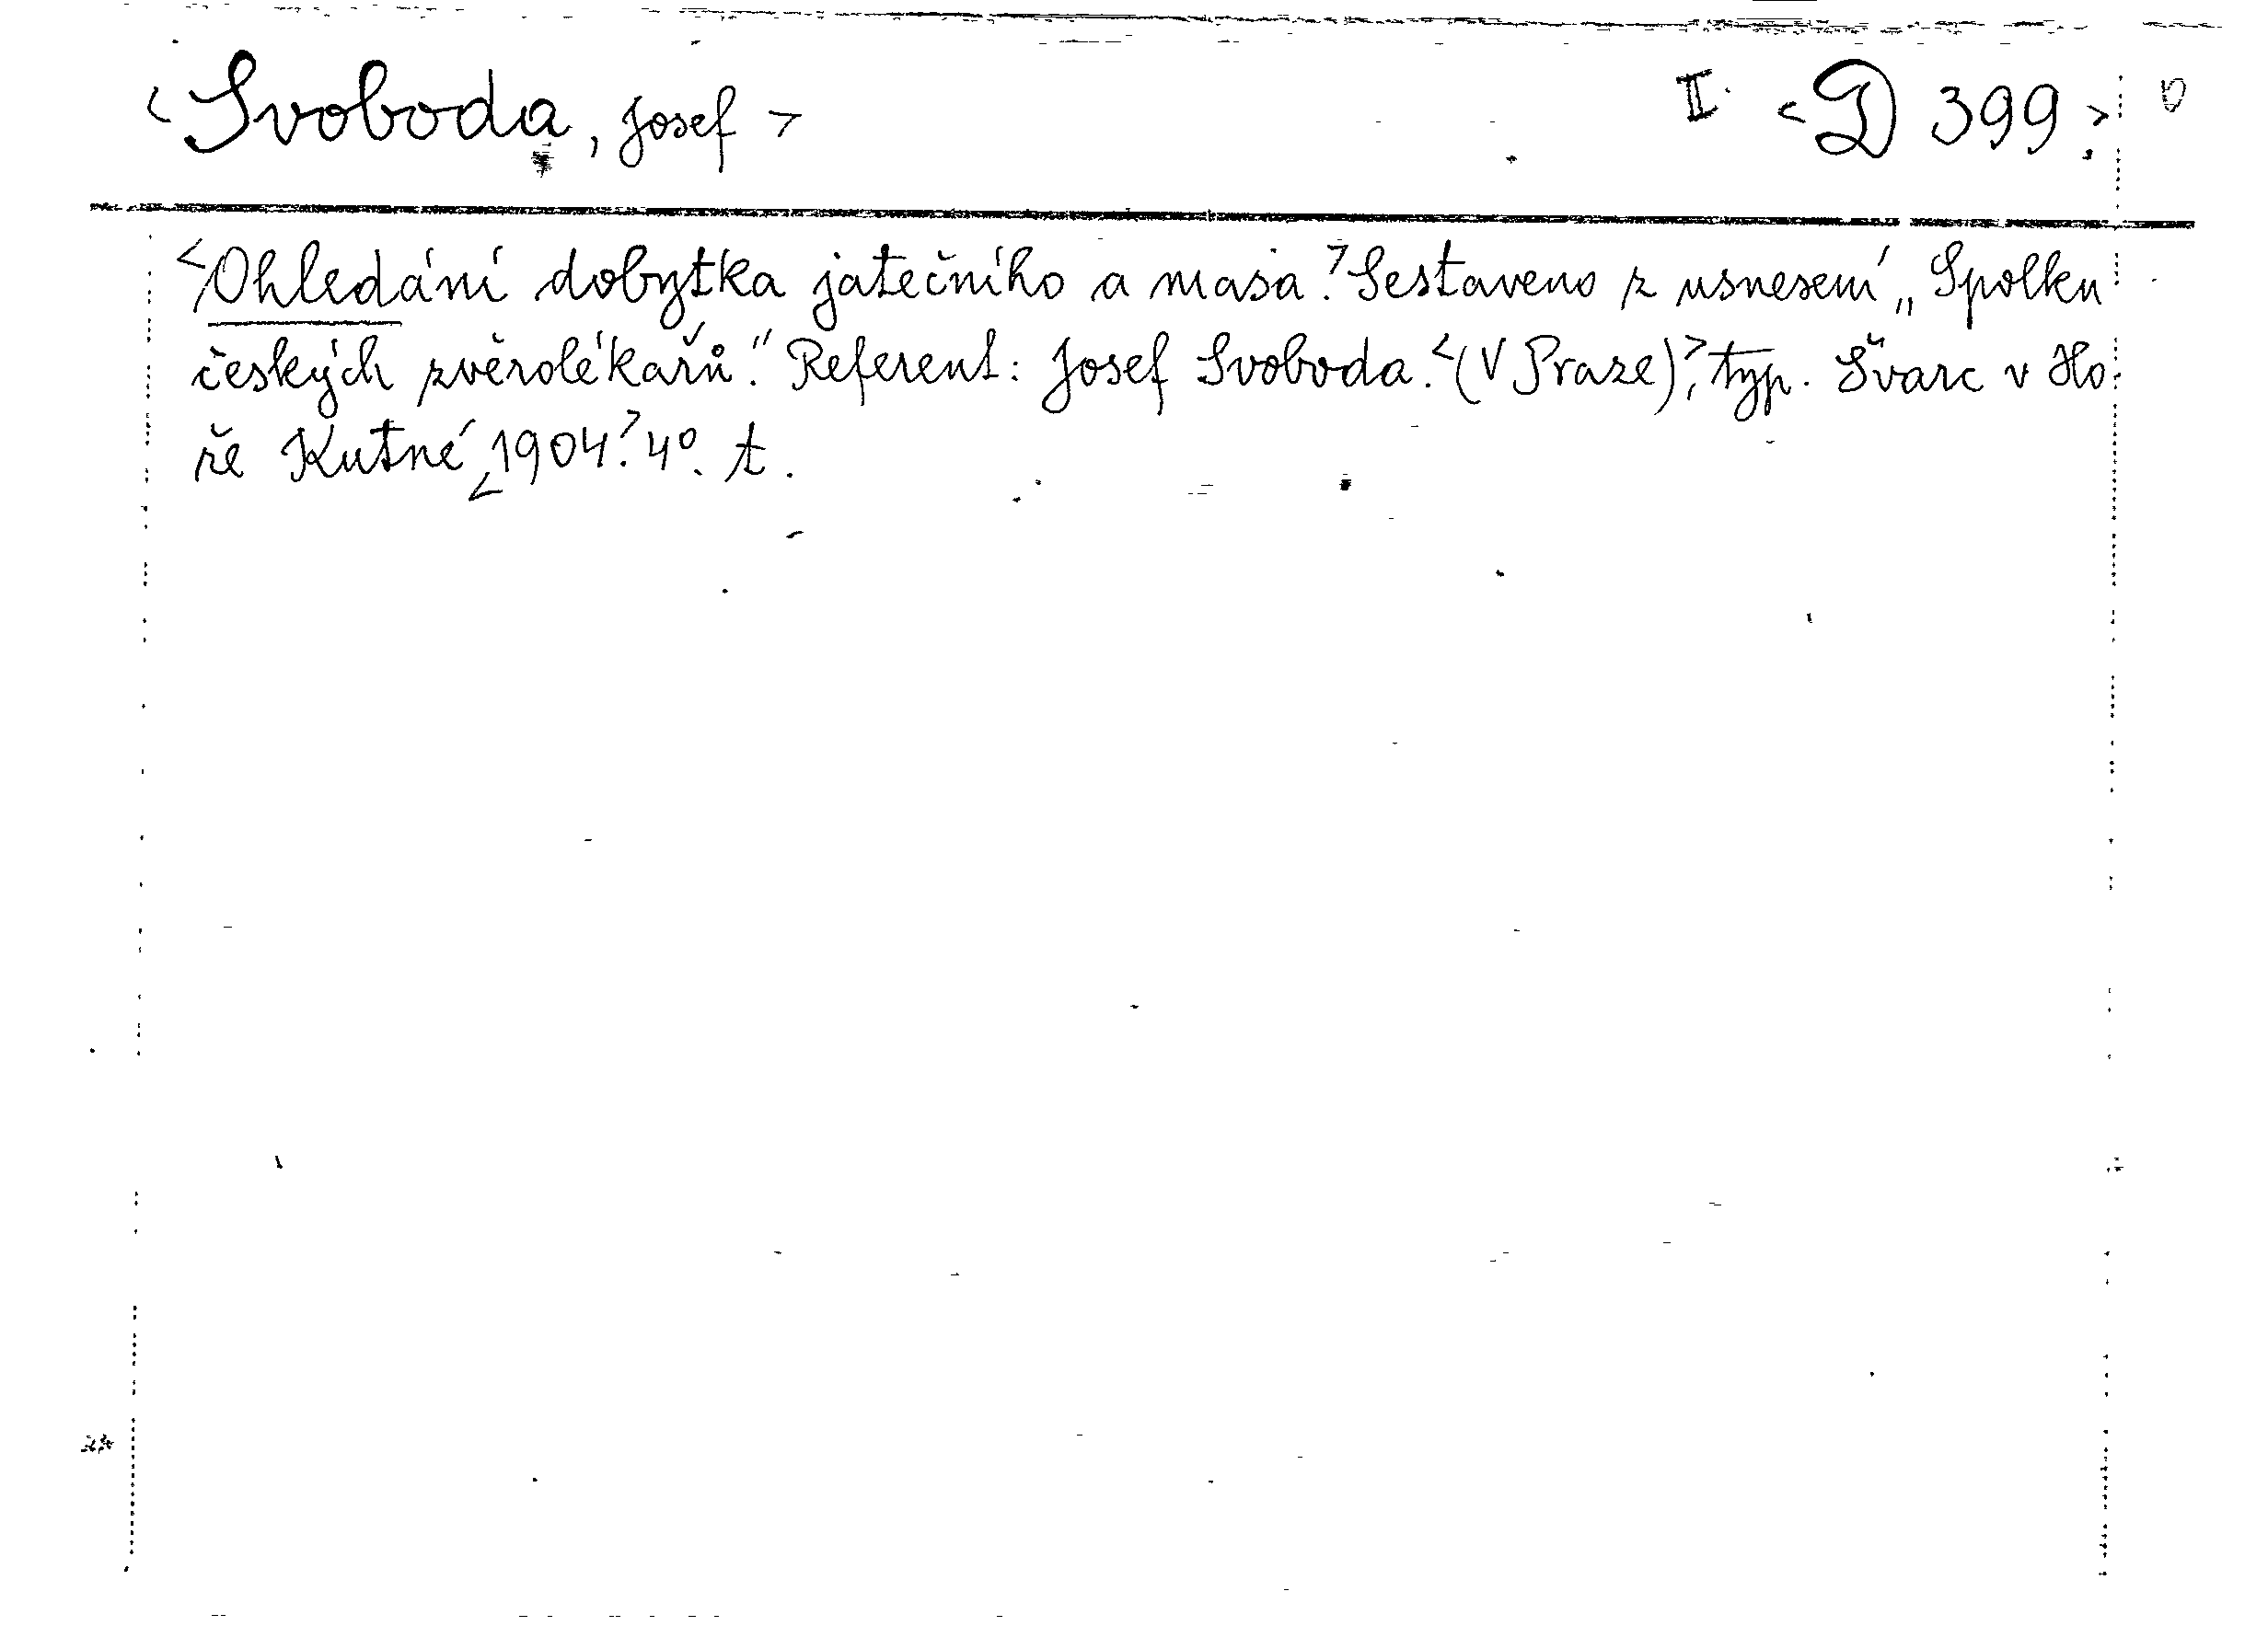 <Svoboda, Josef> II. <D 399.> D
<Ohledání dobytka jatečního a masa.> Sestaveno z usnesení „Spolku
českých zvěrolékařů." Referent: Josef Svoboda. <(V Praze)>, typ. Švarc v Ho-
ře Kutné, <1904.> 4º. t.